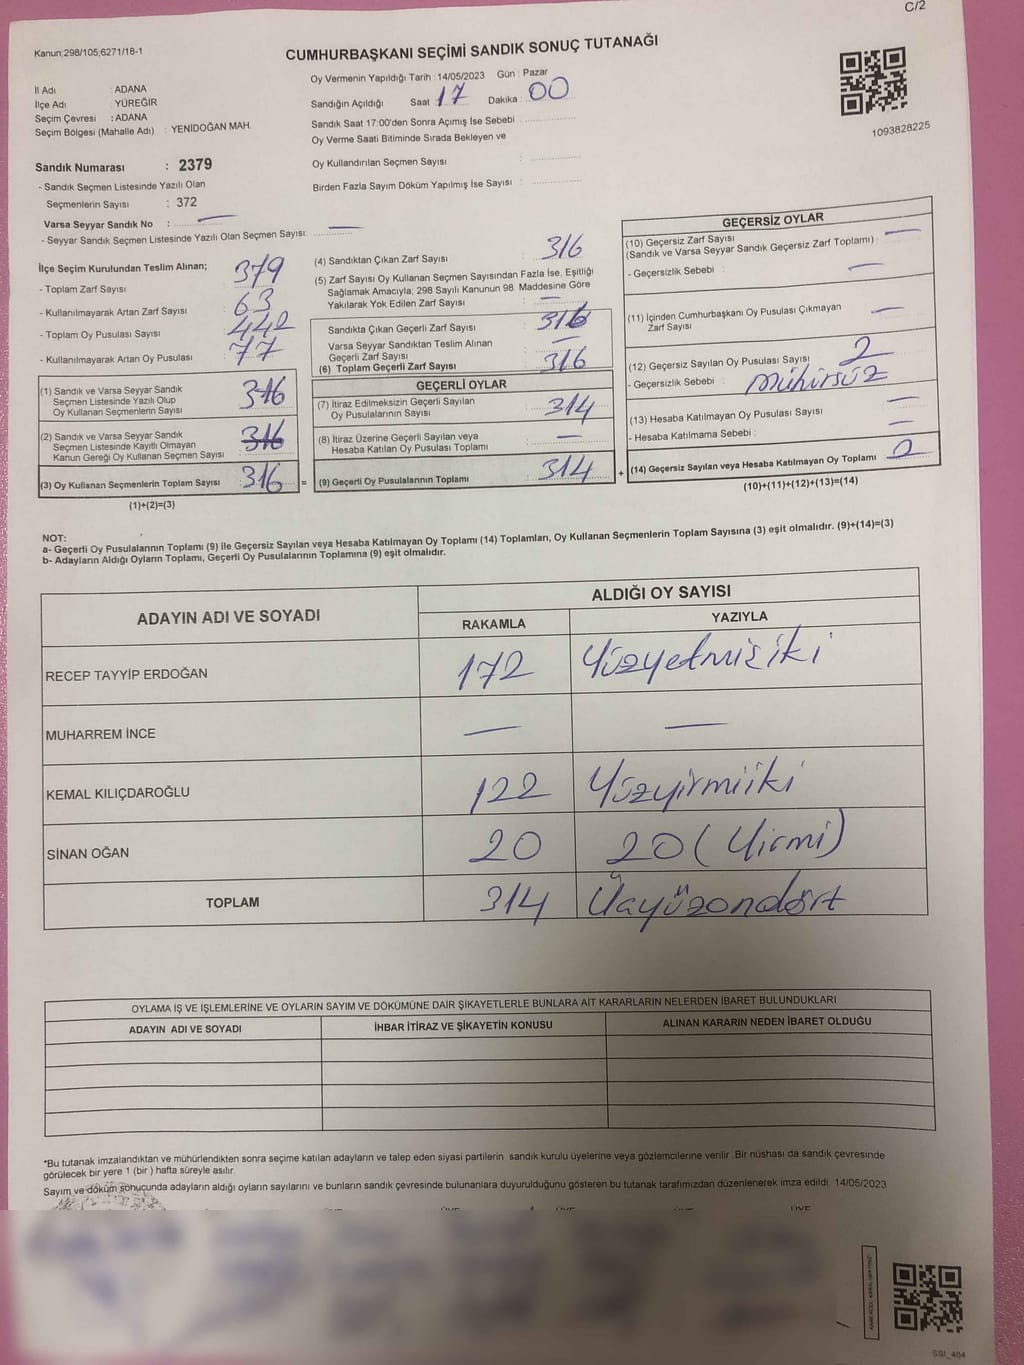 C/2
Kanun:298/105;6271/18-1
CUMHURBAŞKANI SEÇİMİ SANDIK SONUÇ TUTANAĞI
İl Adı : ADANA
İlçe Adı : YÜREĞİR
Seçim Çevresi : ADANA
Seçim Bölgesi (Mahalle Adı) : YENİDOĞAN MAH.
Oy Vermenin Yapıldığı Tarih : 14/05/2023 Gün : Pazar
Sandığın Açıldığı Saat 17 Dakika : 00
Sandık Saat 17:00'den Sonra Açımış İse Sebebi :
Oy Verme Saati Bitiminde Sırada Bekleyen ve
Oy Kullandırılan Seçmen Sayısı :
Birden Fazla Sayım Döküm Yapılmış İse Sayısı :
1093828225
Sandık Numarası : 2379
- Sandık Seçmen Listesinde Yazılı Olan
Seçmenlerin Sayısı : 372
Varsa Seyyar Sandık No : —
- Seyyar Sandık Seçmen Listesinde Yazılı Olan Seçmen Sayısı: —
İlçe Seçim Kurulundan Teslim Alınan;
- Toplam Zarf Sayısı : 379
- Kullanılmayarak Artan Zarf Sayısı : 63
- Toplam Oy Pusulası Sayısı : 442
- Kullanılmayarak Artan Oy Pusulası : 77
(1) Sandık ve Varsa Seyyar Sandık
Seçmen Listesinde Yazılı Olup
Oy Kullanan Seçmenlerin Sayısı : 316
(2) Sandık ve Varsa Seyyar Sandık
Seçmen Listesinde Kayıtlı Olmayan
Kanun Gereği Oy Kullanan Seçmen Sayısı : 316
(3) Oy Kullanan Seçmenlerin Toplam Sayısı : 316 =
(1)+(2)=(3)
(4) Sandıktan Çıkan Zarf Sayısı : 316
(5) Zarf Sayısı Oy Kullanan Seçmen Sayısından Fazla İse, Eşitliği
Sağlamak Amacıyla; 298 Sayılı Kanunun 98. Maddesine Göre
Yakılarak Yok Edilen Zarf Sayısı : —
Sandıkta Çıkan Geçerli Zarf Sayısı : 316
Varsa Seyyar Sandıktan Teslim Alınan
Geçerli Zarf Sayısı : —
(6) Toplam Geçerli Zarf Sayısı : 316
GEÇERLİ OYLAR
(7) İtiraz Edilmeksizin Geçerli Sayılan
Oy Pusulalarının Sayısı : 314
(8) İtiraz Üzerine Geçerli Sayılan veya
Hesaba Katılan Oy Pusulası Toplamı : —
(9) Geçerli Oy Pusulalarının Toplamı : 314 +
GEÇERSİZ OYLAR
(10) Geçersiz Zarf Sayısı
(Sandık ve Varsa Seyyar Sandık Geçersiz Zarf Toplamı) : —
- Geçersizlik Sebebi : —
(11) İçinden Cumhurbaşkanı Oy Pusulası Çıkmayan
Zarf Sayısı : —
(12) Geçersiz Sayılan Oy Pusulası Sayısı : 2
- Geçersizlik Sebebi : mühürsüz
(13) Hesaba Katılmayan Oy Pusulası Sayısı : —
- Hesaba Katılmama Sebebi : —
(14) Geçersiz Sayılan veya Hesaba Katılmayan Oy Toplamı : 2
(10)+(11)+(12)+(13)=(14)
NOT:
a- Geçerli Oy Pusulalarının Toplamı (9) ile Geçersiz Sayılan veya Hesaba Katılmayan Oy Toplamı (14) Toplamları, Oy Kullanan Seçmenlerin Toplam Sayısına (3) eşit olmalıdır. (9)+(14)=(3)
b- Adayların Aldığı Oyların Toplamı, Geçerli Oy Pusulalarının Toplamına (9) eşit olmalıdır.
ADAYIN ADI VE SOYADI ALDIĞI OY SAYISI
RAKAMLA YAZIYLA
RECEP TAYYİP ERDOĞAN 172 Yüzyetmişiki
MUHARREM İNCE — —
KEMAL KILIÇDAROĞLU 122 Yüzyirmiiki
SİNAN OĞAN 20 20 (Yirmi)
TOPLAM 314 Üçyüzondört
OYLAMA İŞ VE İŞLEMLERİNE VE OYLARIN SAYIM VE DÖKÜMÜNE DAİR ŞİKAYETLERLE BUNLARA AİT KARARLARIN NELERDEN İBARET BULUNDUKLARI
ADAYIN ADI VE SOYADI İHBAR İTİRAZ VE ŞİKAYETİN KONUSU ALINAN KARARIN NEDEN İBARET OLDUĞU
*Bu tutanak imzalandıktan ve mühürlendikten sonra seçime katılan adayların ve talep eden siyasi partilerin sandık kurulu üyelerine veya gözlemcilerine verilir. Bir nüshası da sandık çevresinde
görülecek bir yere 1 (bir) hafta süreyle asılır.
Sayım ve döküm sonucunda adayların aldığı oyların sayılarını ve bunların sandık çevresinde bulunanlara duyurulduğunu gösteren bu tutanak tarafımızdan düzenlenerek imza edildi. 14/05/2023
SSI_404